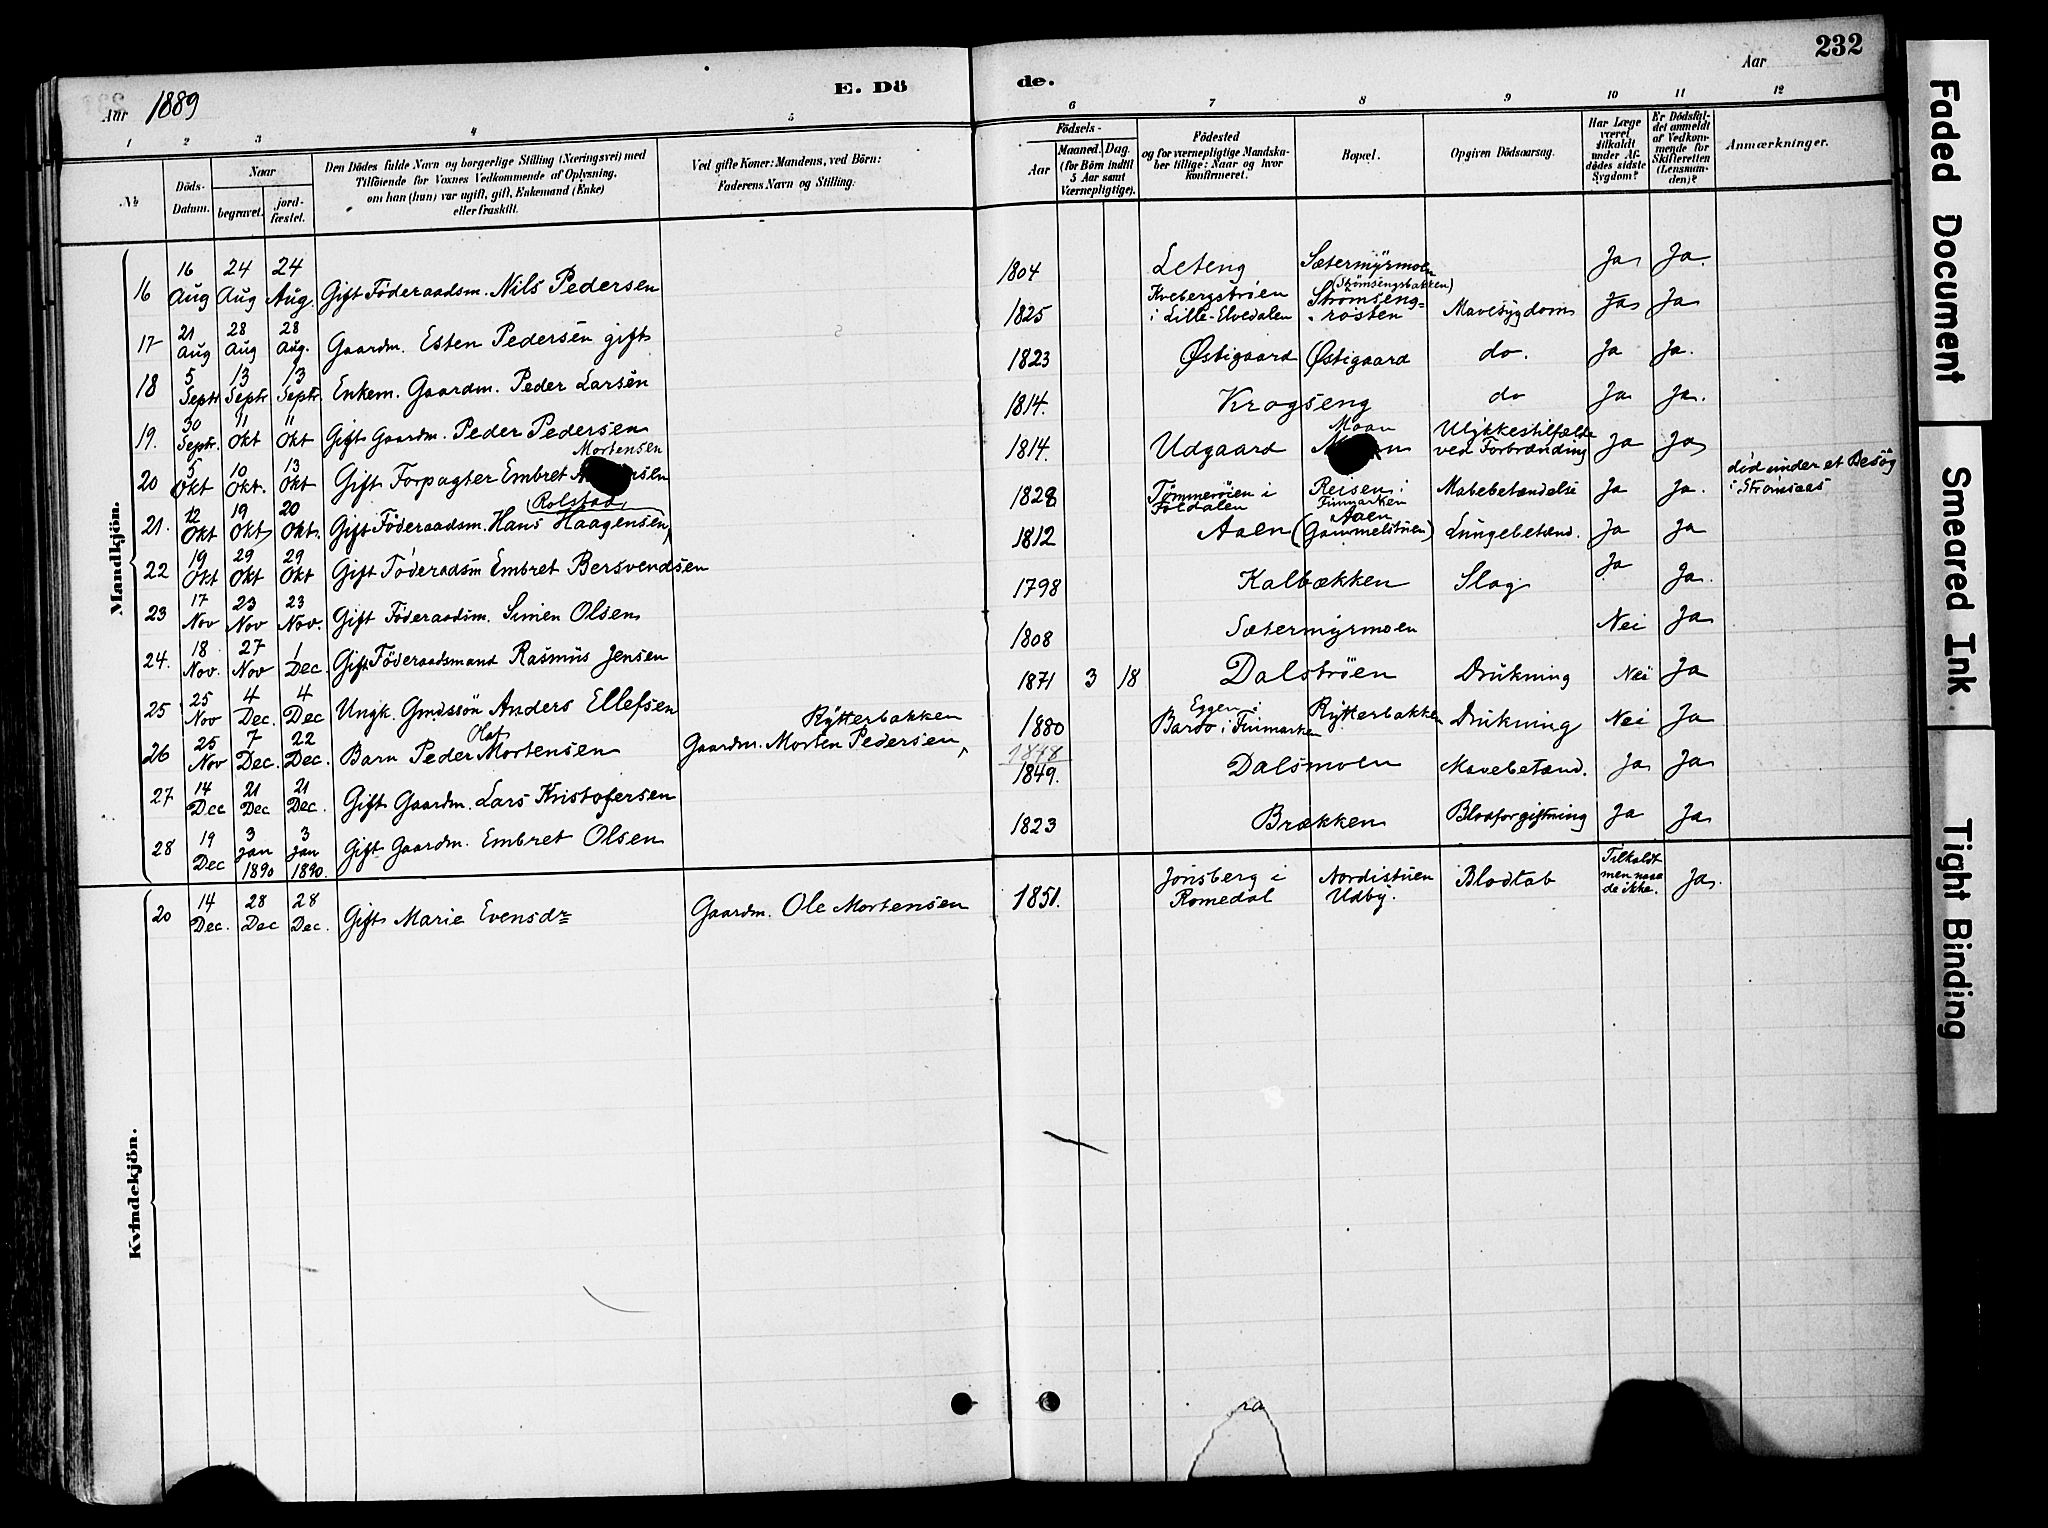 232
Aar 1889
E. Dö
de.
Aar
1 2 3 4 5 6 7 8 9 10 11 12
№
Döds-
Datum.
Naar
begravet.
jord-
fæstet.
Den Dödes fulde Navn og borgerlige Stilling (Næringsvei) med
Tilföiende for Voxnes Vedkommende af Oplysning,
om han (hun) var ugift, gift, Enkemand (Enke)
eller fraskilt.
Ved gifte Koner: Mandens, ved Börn:
Faderens Navn og Stilling.
Födsels-
Aar
Maaned. Dag.
(for Börn indtil
5 Aar samt
Værnepligtige).
Födested
og for værnepligtige Mandska-
ber tillige: Naar og hvor
konfirmeret.
Bopæl.
Opgiven Dödsaarsag.
Har Læge
været
tilkaldt
under Af-
dödes sidste
Sygdom?
Er Dödsfal-
det anmeldt
af Vedkom-
mende for
Skifteretten
(Lensman-
den)?
Anmærkninger.
Mandkjön.
16 16 Aug 24 Aug 24 Aug. Gift Föderaadsm. Nils Pedersen 1804 Leteng Sætermyrmoen (Strömsengsbakken) Ja Ja.
17 21 Aug 28 Aug 28 Aug. Gaardm. Esten Pedersen gift 1825 Kvebergströen i Lille-Elvedalen Strömseng-rösten Mavesygdom Ja Ja
18 5 Septr. 13 Septr 13 Septr. Enkem. Gaardm. Peder Larsen 1823 Østigaard Østigaard do. Ja Ja.
19. 30 Septr. 11 Okt 11 Okt Gift Gaardm. Peder Pedersen 1814. Krogseng do Ja Ja.
20 5 Okt 10 Okt. 13 Okt Gift Forpagter Embret Mortensen 1814. Udgaard Moan Ulykkestilfælde ved Forbrænding Ja Ja
21. 12 Okt 19 Okt 20 Okt. Gift Föderaadsm. Hans Haagensen, Rolstad 1828 Tömmeröien i Foldalen Reisen i Finmarken Mavebetændelse Ja Ja. död under et Besög i Strömsaas
22 19 Okt 29 Okt 29 Okt Gift Föderaadsm Embret Bersvendsen 1812 Aaen Aaen (Gammelstuen) Lungebetænd. Ja Ja
23 17 Nov 23 Nov 23 Nov. Gift Föderaadsm. Simen Olsen 1798 Kalbækken Slag Ja Ja.
24. 18 Nov. 27 Nov 1 Dec. Gift Föderaadsmand Rasmus Jensen 1808 Sætermyrmoen Nei Ja
25 25 Nov 4 Dec. 4 Dec Ungk. Gmdssön Anders Ellefsen 1871 3 18 Dalströen Drukning Nei Ja
26 25 Nov 7 Dec. 22 Dec. Barn Peder Olaf Mortensen Gaardm. Morten Pedersen, Rytterbakken 1880 Eggen i Bardo i Finmarken Rytterbakken Drukning Nei Ja
27 14 Dec 21 Dec 21 Dec. Gift Gaardm. Lars Kristofersen 1848 1849. Dalsmoen Mavebetænd. Ja Ja
28 19 Dec 3 Jan 1890 3 Jan 1890. Gift Gaardm. Embret Olsen 1823 Brækken Blodforgiftning Ja Ja
Kvindekjön.
20 14 Dec. 28 Dec 28 Dec. Gift Marie Evensdr Gaardm. Ole Mortensen 1851. Jönsberg i Romedal Nordistuen Udby. Blodtab Tilkaldt men naaede ikke. Ja
Faded Document
Smeared Ink
Tight Binding